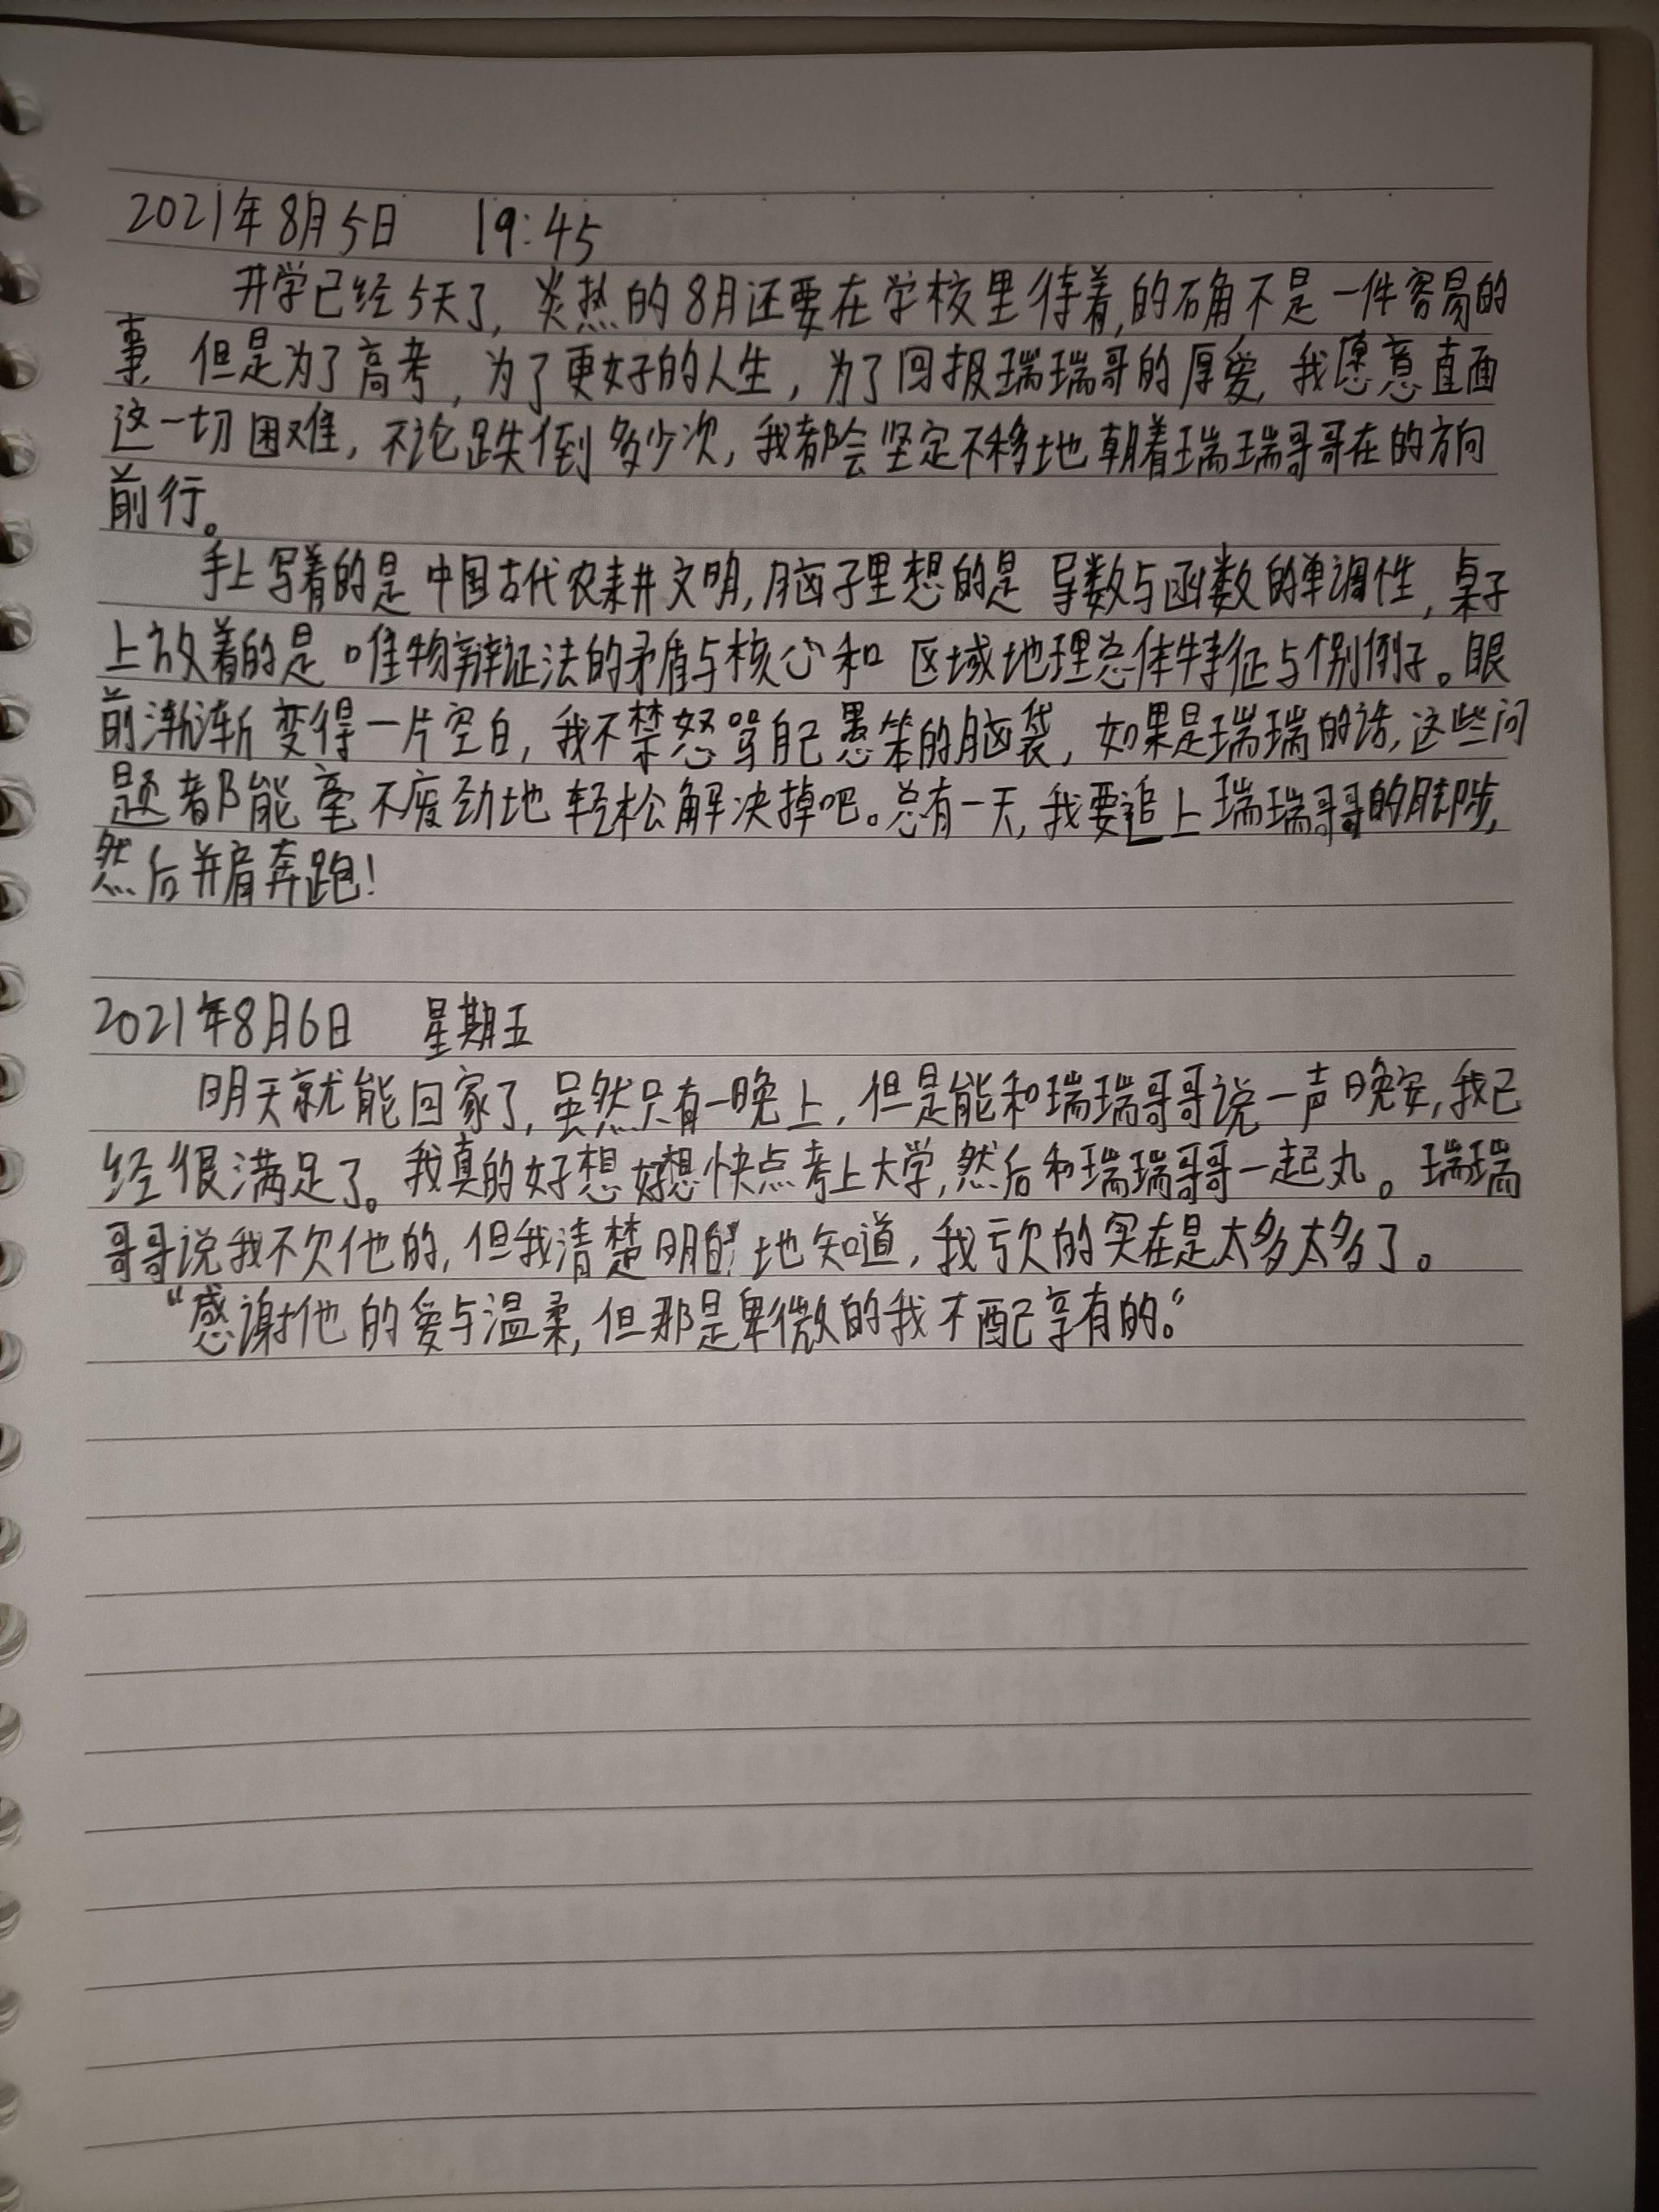 2021年8月5日 19:45
开学已经5天了,炎热的8月还要在学校里待着,的确不是一件容易的
事,但是为了高考,为了更好的人生,为了回报瑞瑞哥的厚爱,我愿意直面
这一切困难,不论跌倒多少次,我都会坚定不移地朝着瑞瑞哥哥在的方向
前行。
手上写着的是中国古代农耕文明,脑子里想的是导数与函数的单调性,桌子
上放着的是唯物辩证法的矛盾与核心和区域地理总体特征与个别例子。眼
前渐渐变得一片空白,我不禁怒骂自己愚笨的脑袋,如果是瑞瑞的话,这些问
题都能毫不废劲地轻松解决掉吧。总有一天,我要追上瑞瑞哥哥的脚步,
然后并肩奔跑!
2021年8月6日 星期五
明天就能回家了,虽然只有一晚上,但是能和瑞瑞哥哥说一声晚安,我已
经很满足了。我真的好想好想快点考上大学,然后和瑞瑞哥哥一起丸。瑞瑞
哥哥说我不欠他的,但我清楚明白地知道,我亏欠的实在是太多太多了。
“感谢他的爱与温柔,但那是卑微的我不配享有的。”